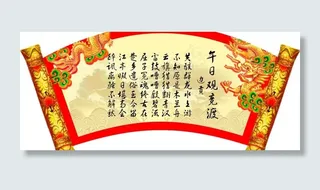 午日观竞渡
边贡
共骇群龙水上游
不知原是木兰舟
云旗猎猎翻青汉
雷鼓嘈嘈殷碧流
屈子冤魂终古在
楚乡遗俗至今留
江亭暇日堪高会
醉讽离骚不解愁